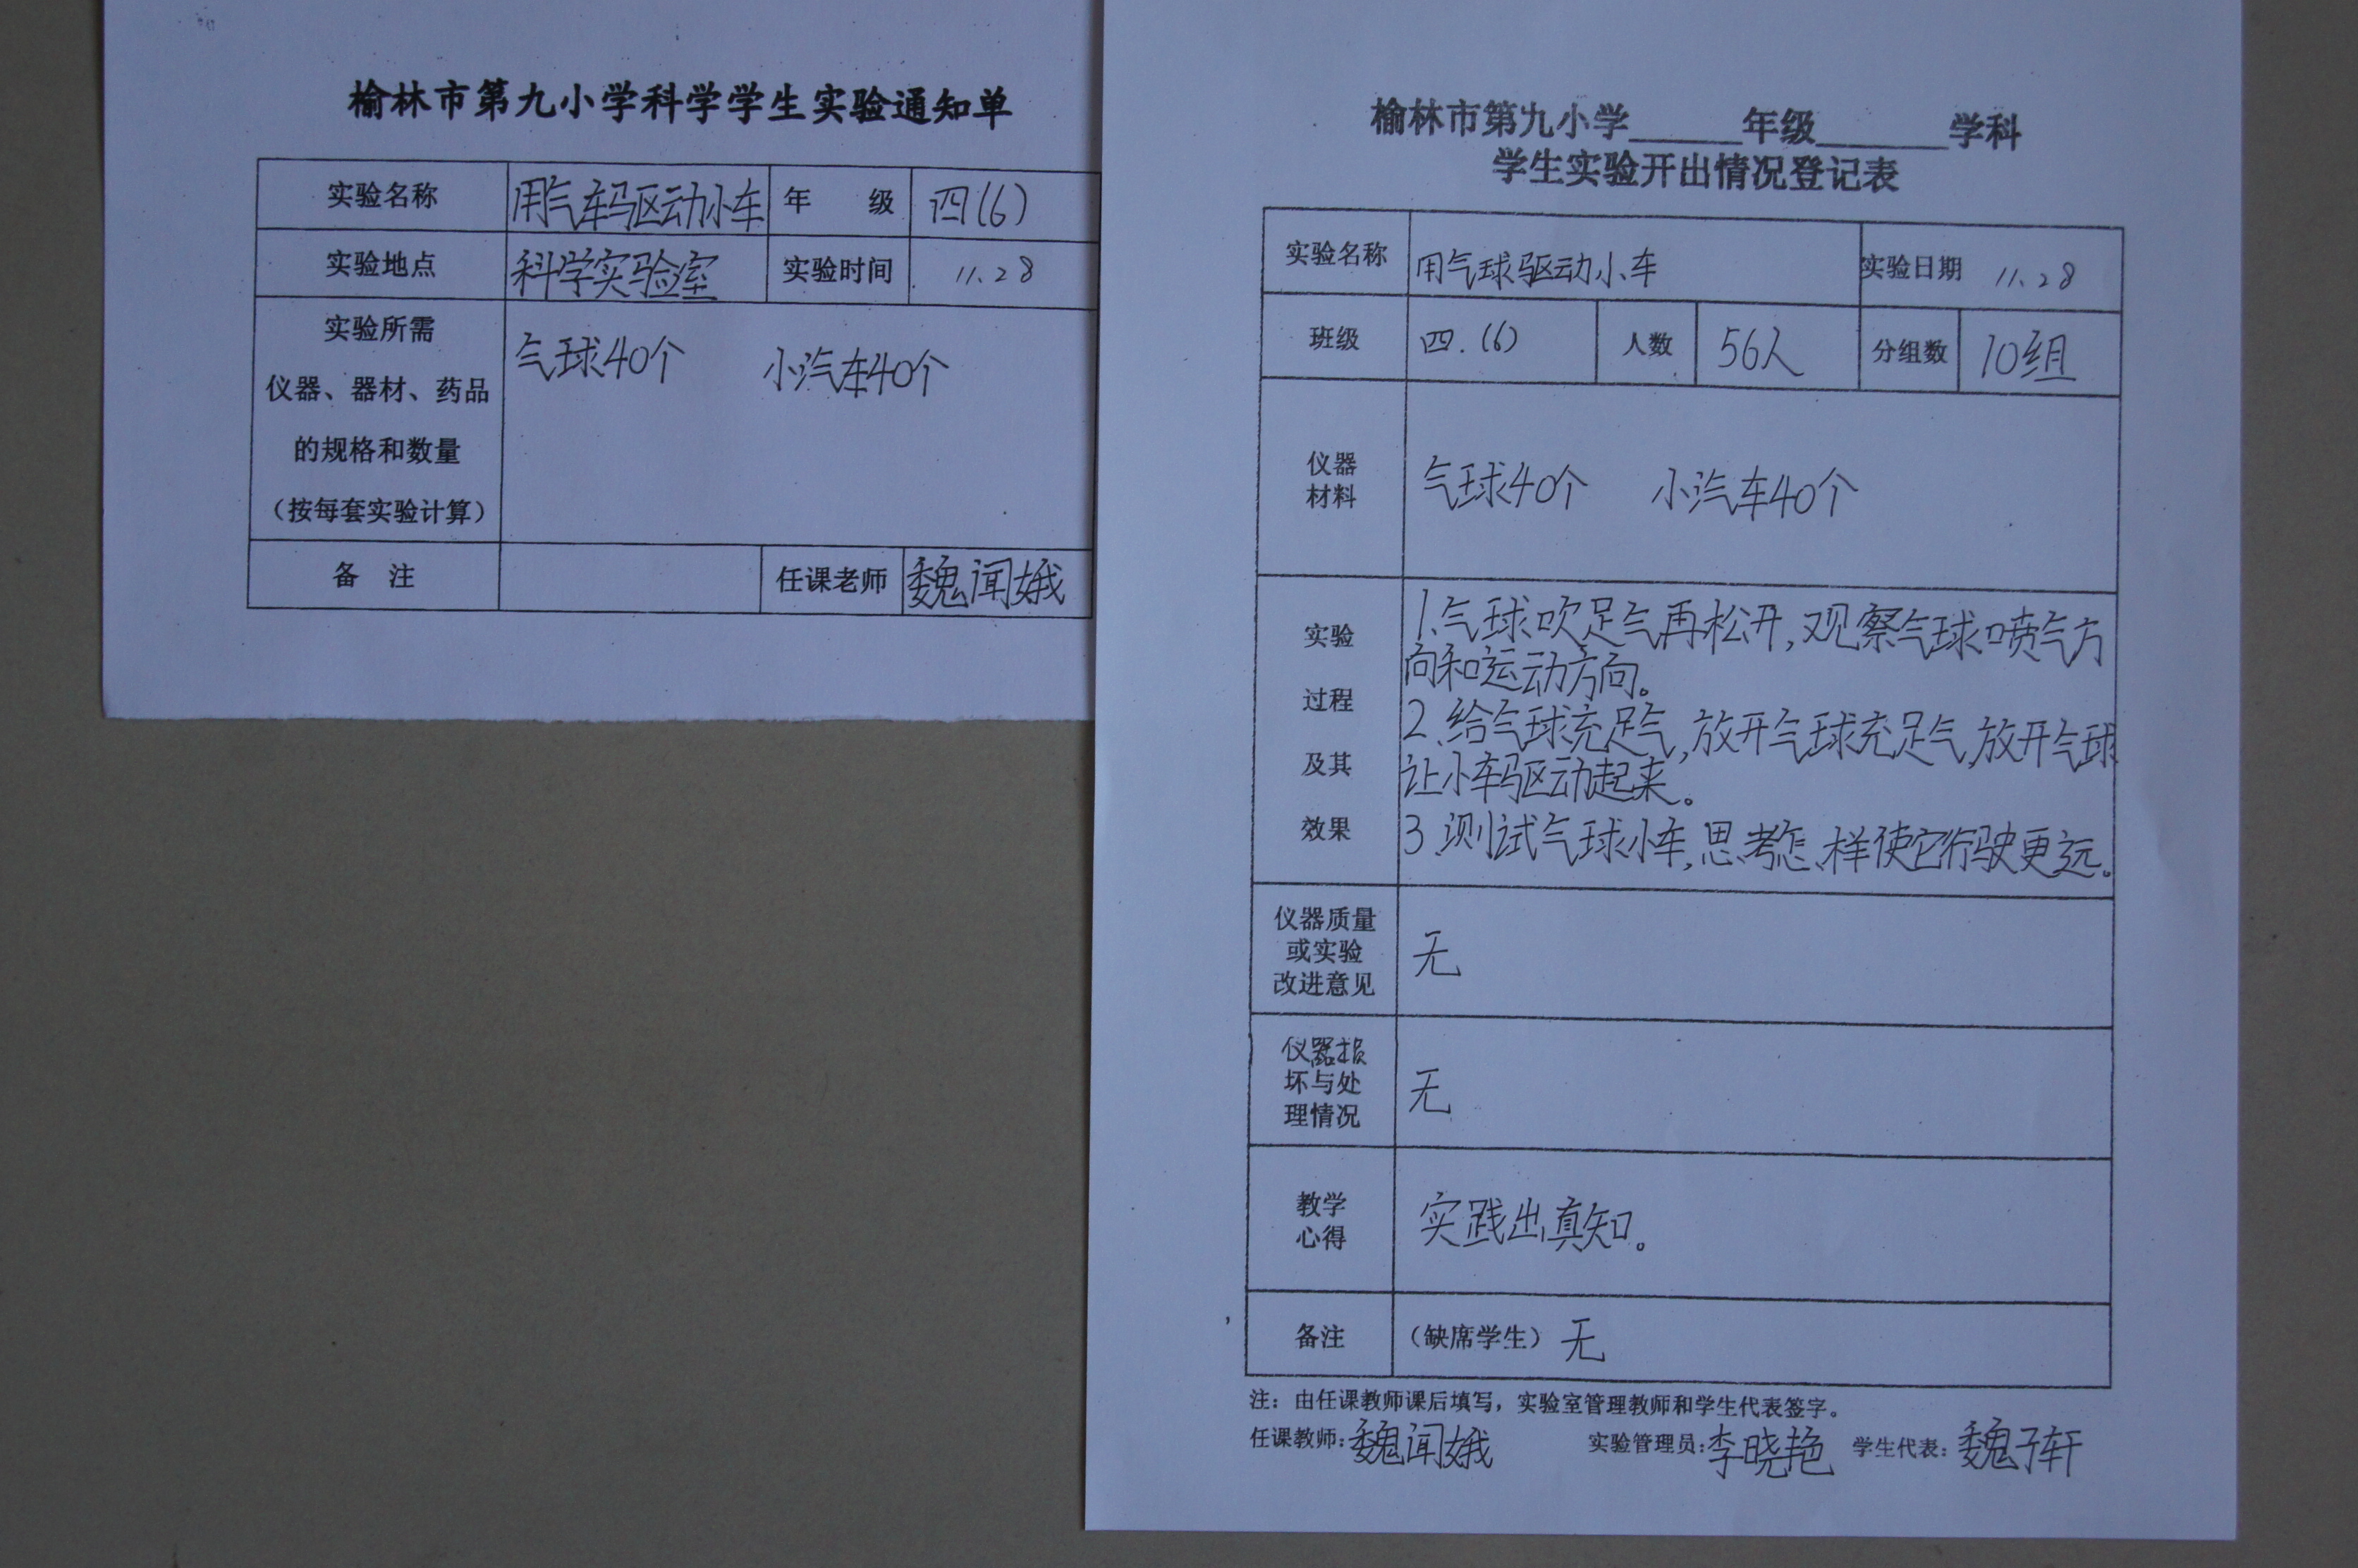 榆林市第九小学科学学生实验通知单
实验名称 用气车驱动小车 年 级 四(6)
实验地点 科学实验室 实验时间 11.28
实验所需
仪器、器材、药品
的规格和数量
（按每套实验计算）
气球40个 小汽车40个
备 注 任课老师 魏闻娥
榆林市第九小学______年级_______学科
学生实验开出情况登记表
实验名称 用气球驱动小车 实验日期 11.28
班级 四.(6) 人数 56人 分组数 10组
仪器
材料
气球40个 小汽车40个
实验
过程
及其
效果
1.气球吹足气再松开,观察气球喷气方
向和运动方向。
2.给气球充足气,放开气球充足气,放开气球
让小车驱动起来。
3.测试气球小车,思考怎样使它行驶更远。
仪器质量
或实验
改进意见
无
仪器损
坏与处
理情况
无
教学
心得
实践出真知。
备注 （缺席学生）无
注：由任课教师课后填写，实验室管理教师和学生代表签字。
任课教师：魏闻娥 实验管理员：李晓艳 学生代表：魏子轩